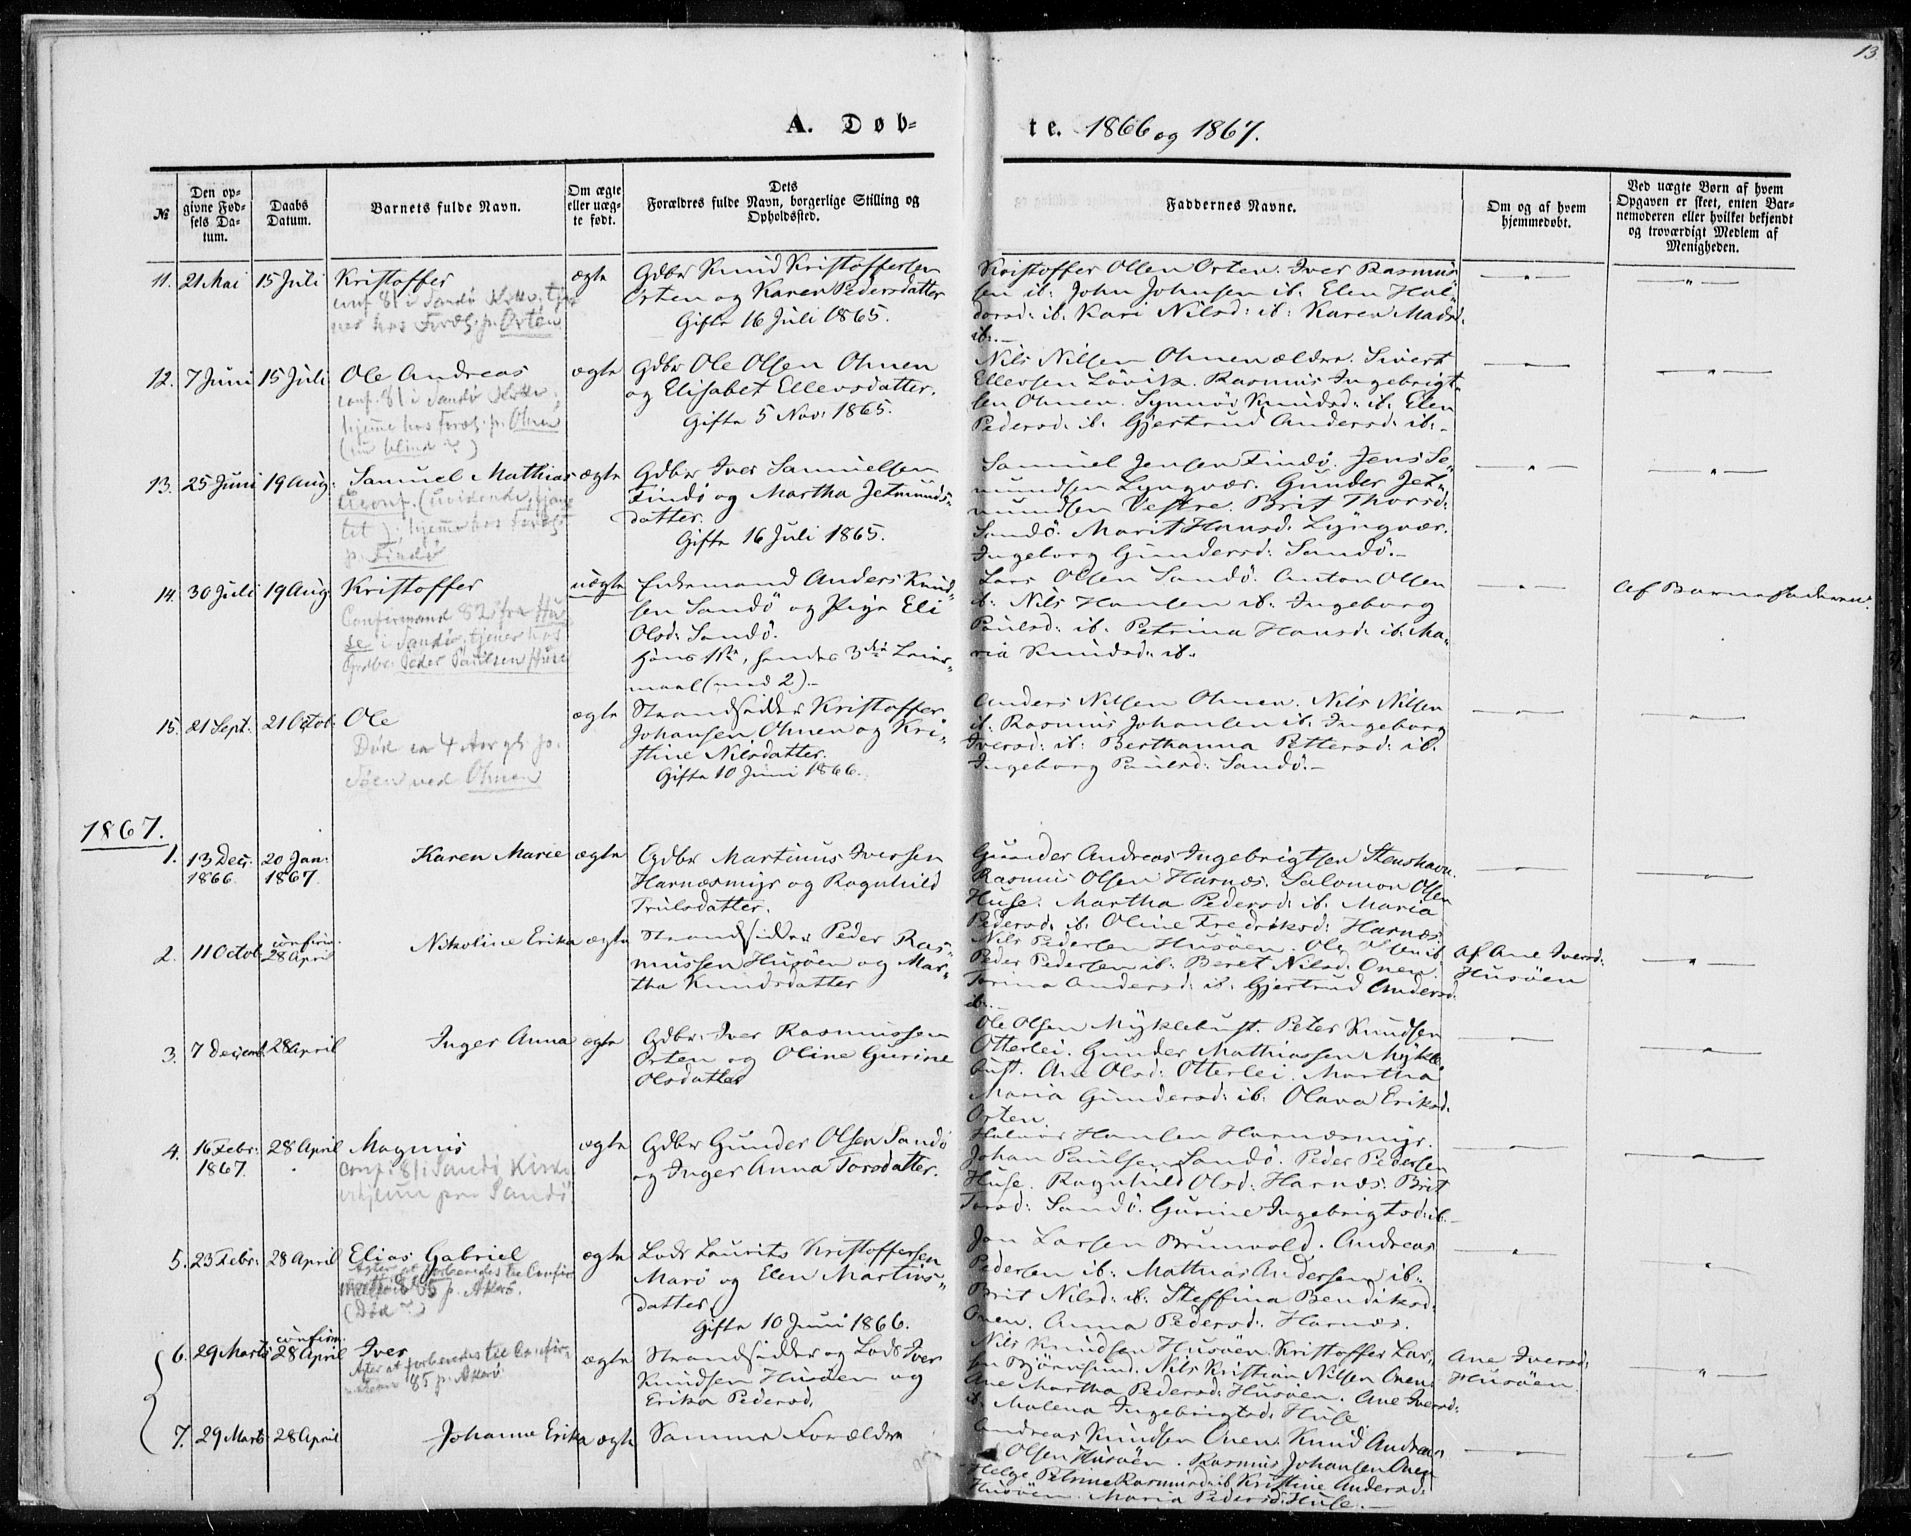 13
A. Døbte. 1866 og 1867.
№
Den opgivne Fødsels Datum.
Daabs Datum.
Barnets fulde Navn.
Om ægte eller uægte født.
Dets Forældres fulde Navn, borgerlige Stilling og Opholdssted.
Faddernes Navne.
Om og af hvem hjemmedøbt.
Ved uægte Børn af hvem Opgaven er skeet, enten Barnemoderen eller hvilket bekjendt og troværdigt Medlem af Menigheden.
11. 21 Mai 15 Juli Kristoffer ægte
conf. 81 i Sandø Kirke, tje
ner hos Foræl. p. Orten
Gdbr Knud Kristoffersen
Orten og Karen Pedersdatter
Gifte 16 Juli 1865.
Kristoffer Olsen Orten. Iver Rasmus
sen ib. John Johnsen ib. Elen Hal
dorsd: ib. Kari Nilsd: ib: Karen Madsd.
ib.
12. 7 Juni 15 Juli Ole Andreas ægte
conf. 81 i Sandø Kirke,
hjemme hos Foræl. p. Ohnen
(nu blind?)
Gdbr Ole Olsen Ohnen
og Elisabet Ellevsdatter.
Gifte 5 Nov: 1865.
Nils Nilsen Ohnen ældre. Sivert
Ellevsen Lövik. Rasmus Ingebrigt
sen Ohnen. Synnöv Knudsd: ib. Elen
Pedersd: ib. Gjertrud Andersd: ib:
13. 25 Juni 19 Aug: Samuel Mathias ægte
hjemme hos Foræl
p. Findø
Gdbr Iver Samuelsen
Findø og Martha Jetmunds
datter.
Gifte 16 Juli 1865.
Samuel Jensen Findø. Jens Se
mundsen Lyngvær. Gunder Jet
mundsen Vestre. Brit Thorsd:
Sandö. Marit Hansd: Lyngvær.
Ingeborg Gundersd: Sandö.
14. 30 Juli 19 Aug Kristoffer uægte
Confirmand 82 fra Hu
se i Sandø, tjener hos
Gdbr. Peder Paulsen Huse
Enkemand Anders Knud
sen Sandö og Pige Eli
Olsd: Sandö.
Hans 1ste, hendes 3die Leier
maal (med 2).
Lars Olsen Sandö. Anton Olsen
ib. Nils Hansen ib. Ingeborg
Paulsd: ib. Petrina Hansd: ib. Ma
ria Knudsd: ib.
Af Barnefaderen.
15. 21 Sept. 21 Octob: Ole ægte
Død ca 4 Aar gl. p.
Søen ved Ohnen
Strandsidder Kristoffer
Johansen Ohnen og Kri
stine Nilsdatter.
Gifte 10 Juni 1866.
Anders Nilsen Ohnen. Nils Nilsen
ib. Rasmus Johansen ib. Ingeborg
Iversd: ib. Berthanna Pettersd: ib.
Ingeborg Paulsd: Sandö.
1867.
1. 13 Dec. 1866. 20 Jan: 1867. Karen Marie ægte
Gdbr Martinus Iversen
Harnæsmyr og Ragnhild
Trulsdatter.
Gunder Andreas Ingebrigtsen Stenshavn.
Rasmus Olsen Harnæs. Salomon Olsen
Huse. Martha Pedersd: ib. Maria
Pedersd: ib. Oline Fredriksd: Harnæs.
2. 11 Octob: confirm. 28 April Nikoline Erika ægte
Strandsidder Peder Ras
mussen Husöen og Mar
tha Knudsdatter
Nils Pedersen Husöen. Ole Olsen ib
Peder Pedersen ib. Beret Nilsd: Onen.
Torina Andersd: ib. Gjertrud Andersd:
ib.
Af Ane Iversd:
Husöen
3. 7 Decemb. 28 April Inger Anna ægte
Gdbr: Iver Rasmussen
Orten og Oline Gurine
Olsdatter
Ole Olsen Myklebust. Peter Knudsen
Otterlei. Gunder Mathiassen Mykle
bust. Ane Olsd: Otterlei. Martha
Maria Gundersd: ib. Olava Eriksd:
Orten.
4. 16 Febr: 1867. 28 April Magnus ægte
conf. 81 i Sandø Kirke
Sandö
Gdbr Gunder Olsen Sandö
og Inger Anna Torsdatter.
Halvor Hansen Harnæsmyr.
Johan Paulsen Sandö. Peder Pedersen
Huse. Ragnhild Olsd: Harnæs. Brit
Torsd: Sandö. Gurine Ingebrigtsd: ib.
5. 23 Febr: 28 April Elias Gabriel ægte
Agter at forberedes til Confir
mation 85 p. Akerø.
(Død?)
Lods Laurits Kristoffersen
Marö og Elen Martins
datter.
Gifte 10 Juni 1866.
Jon Larsen Brunvold. Andreas
Pedersen ib. Mathias Andersen ib.
Brit Nilsd: ib. Steffina Bendiksd:
Onen. Anna Pedersd: Harnæs.
6. 29 Marts confirm. 28 April Iver ægte
Agter at forberedes til Confir
mation 85 p. Akerø
Strandsidder og Lods Iver
Knudsen Husöen og
Erika Pedersd.
Nils Knudsen Husöen. Kristoffer Lar
sen Björnsund. Nils Kristian Nilsen Onen.
Ane Martha Pedersd: Husöen. Ane Iversd:
ib. Malena Ingebrigtsd: Huse
Ane Iversd:
Husöen.
7. 29 Marts 28 April Johanne Erika ægte
Samme Forældre
Andreas Knudsen Onen. Knud Andreas
Olsen Husöen. Rasmus Johansen Onen
Helge Petrine Rasmusd: ib Kristine Andersd:
Husöen. Maria Pedersd: Huse.